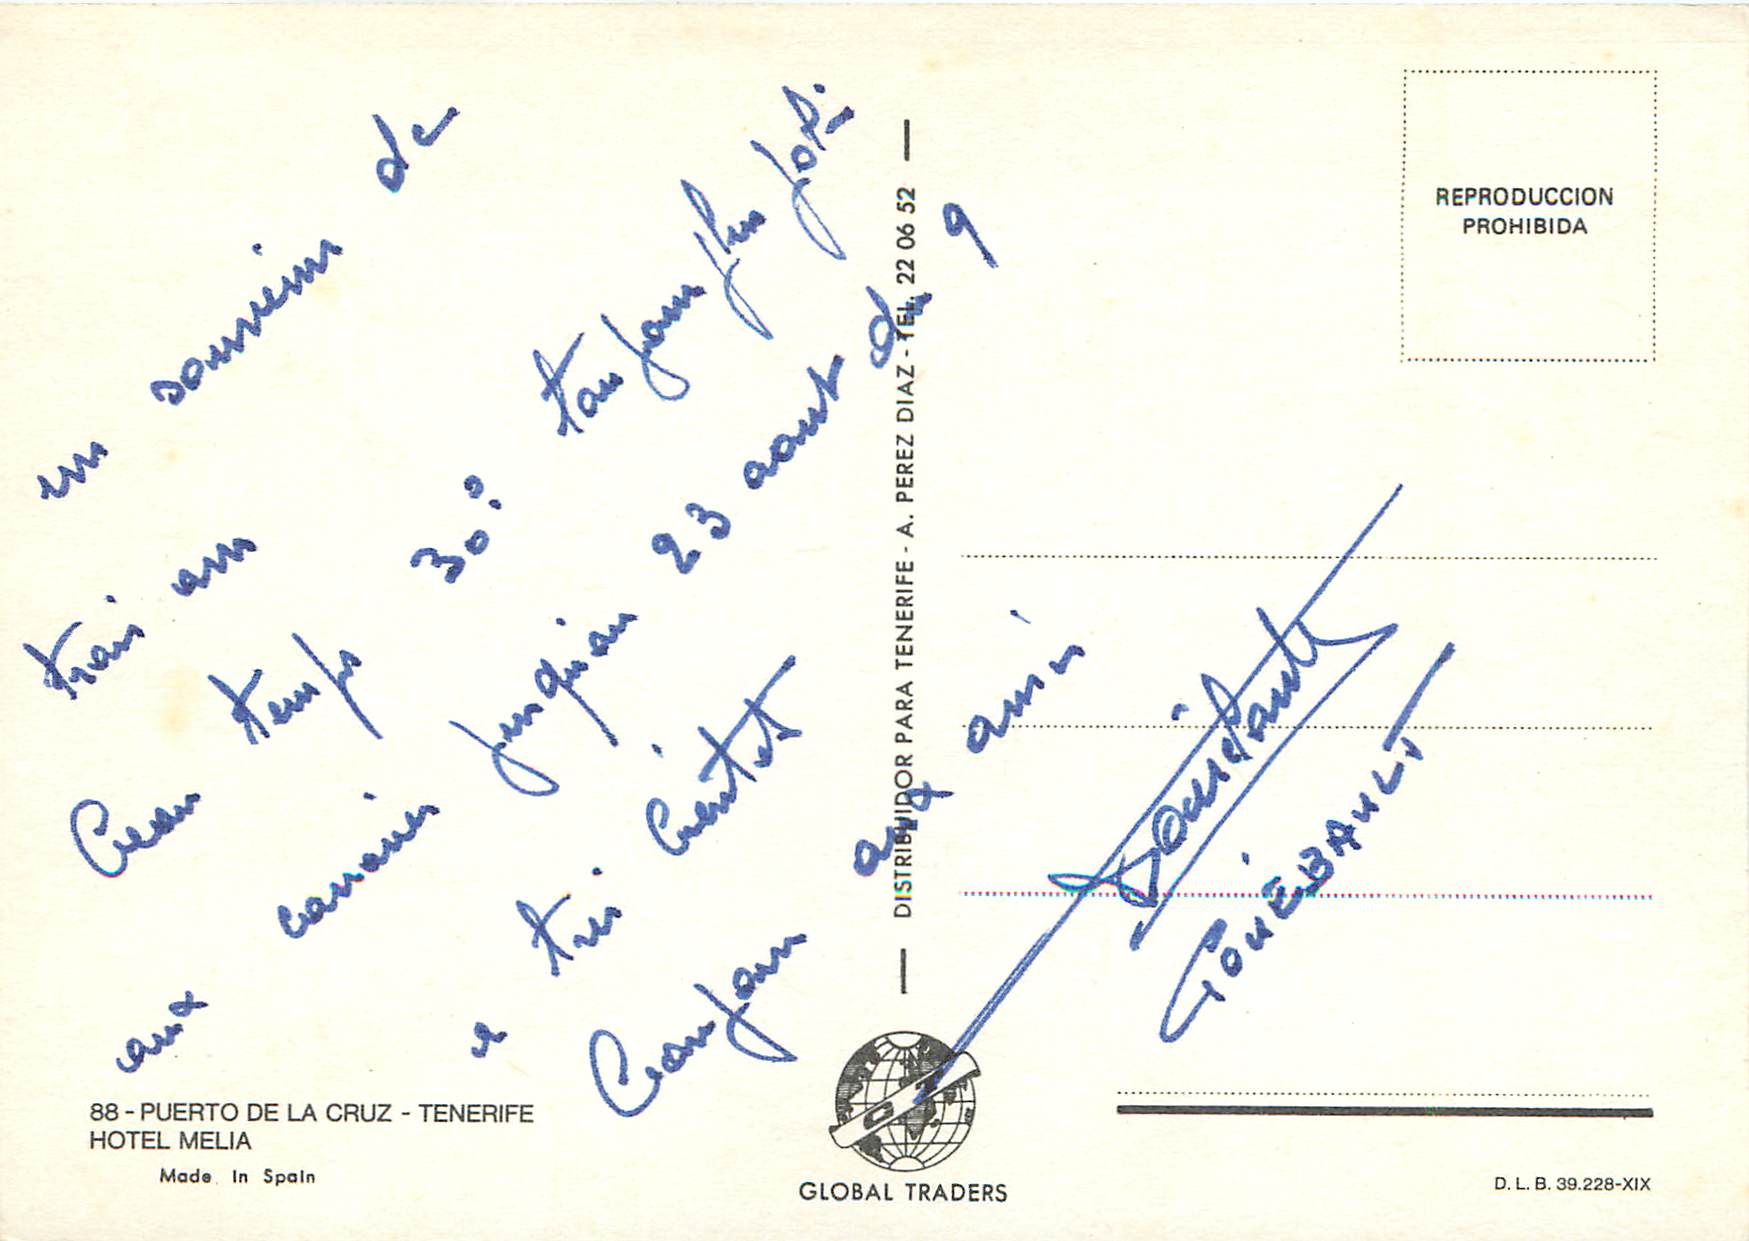 un souvenir de
trois ans
beau temps 30° toujours plus joli
aux canaries jusquau 23 aout 9
a tres bientot
Bonjour aux amis
GOUÉBAULT
88 - PUERTO DE LA CRUZ - TENERIFE
HOTEL MELIA
Made In Spain
DISTRIBUIDOR PARA TENERIFE - A. PEREZ DIAZ - TEL. 22 06 52
GLOBAL TRADERS
REPRODUCCION
PROHIBIDA
D. L. B. 39.228-XIX